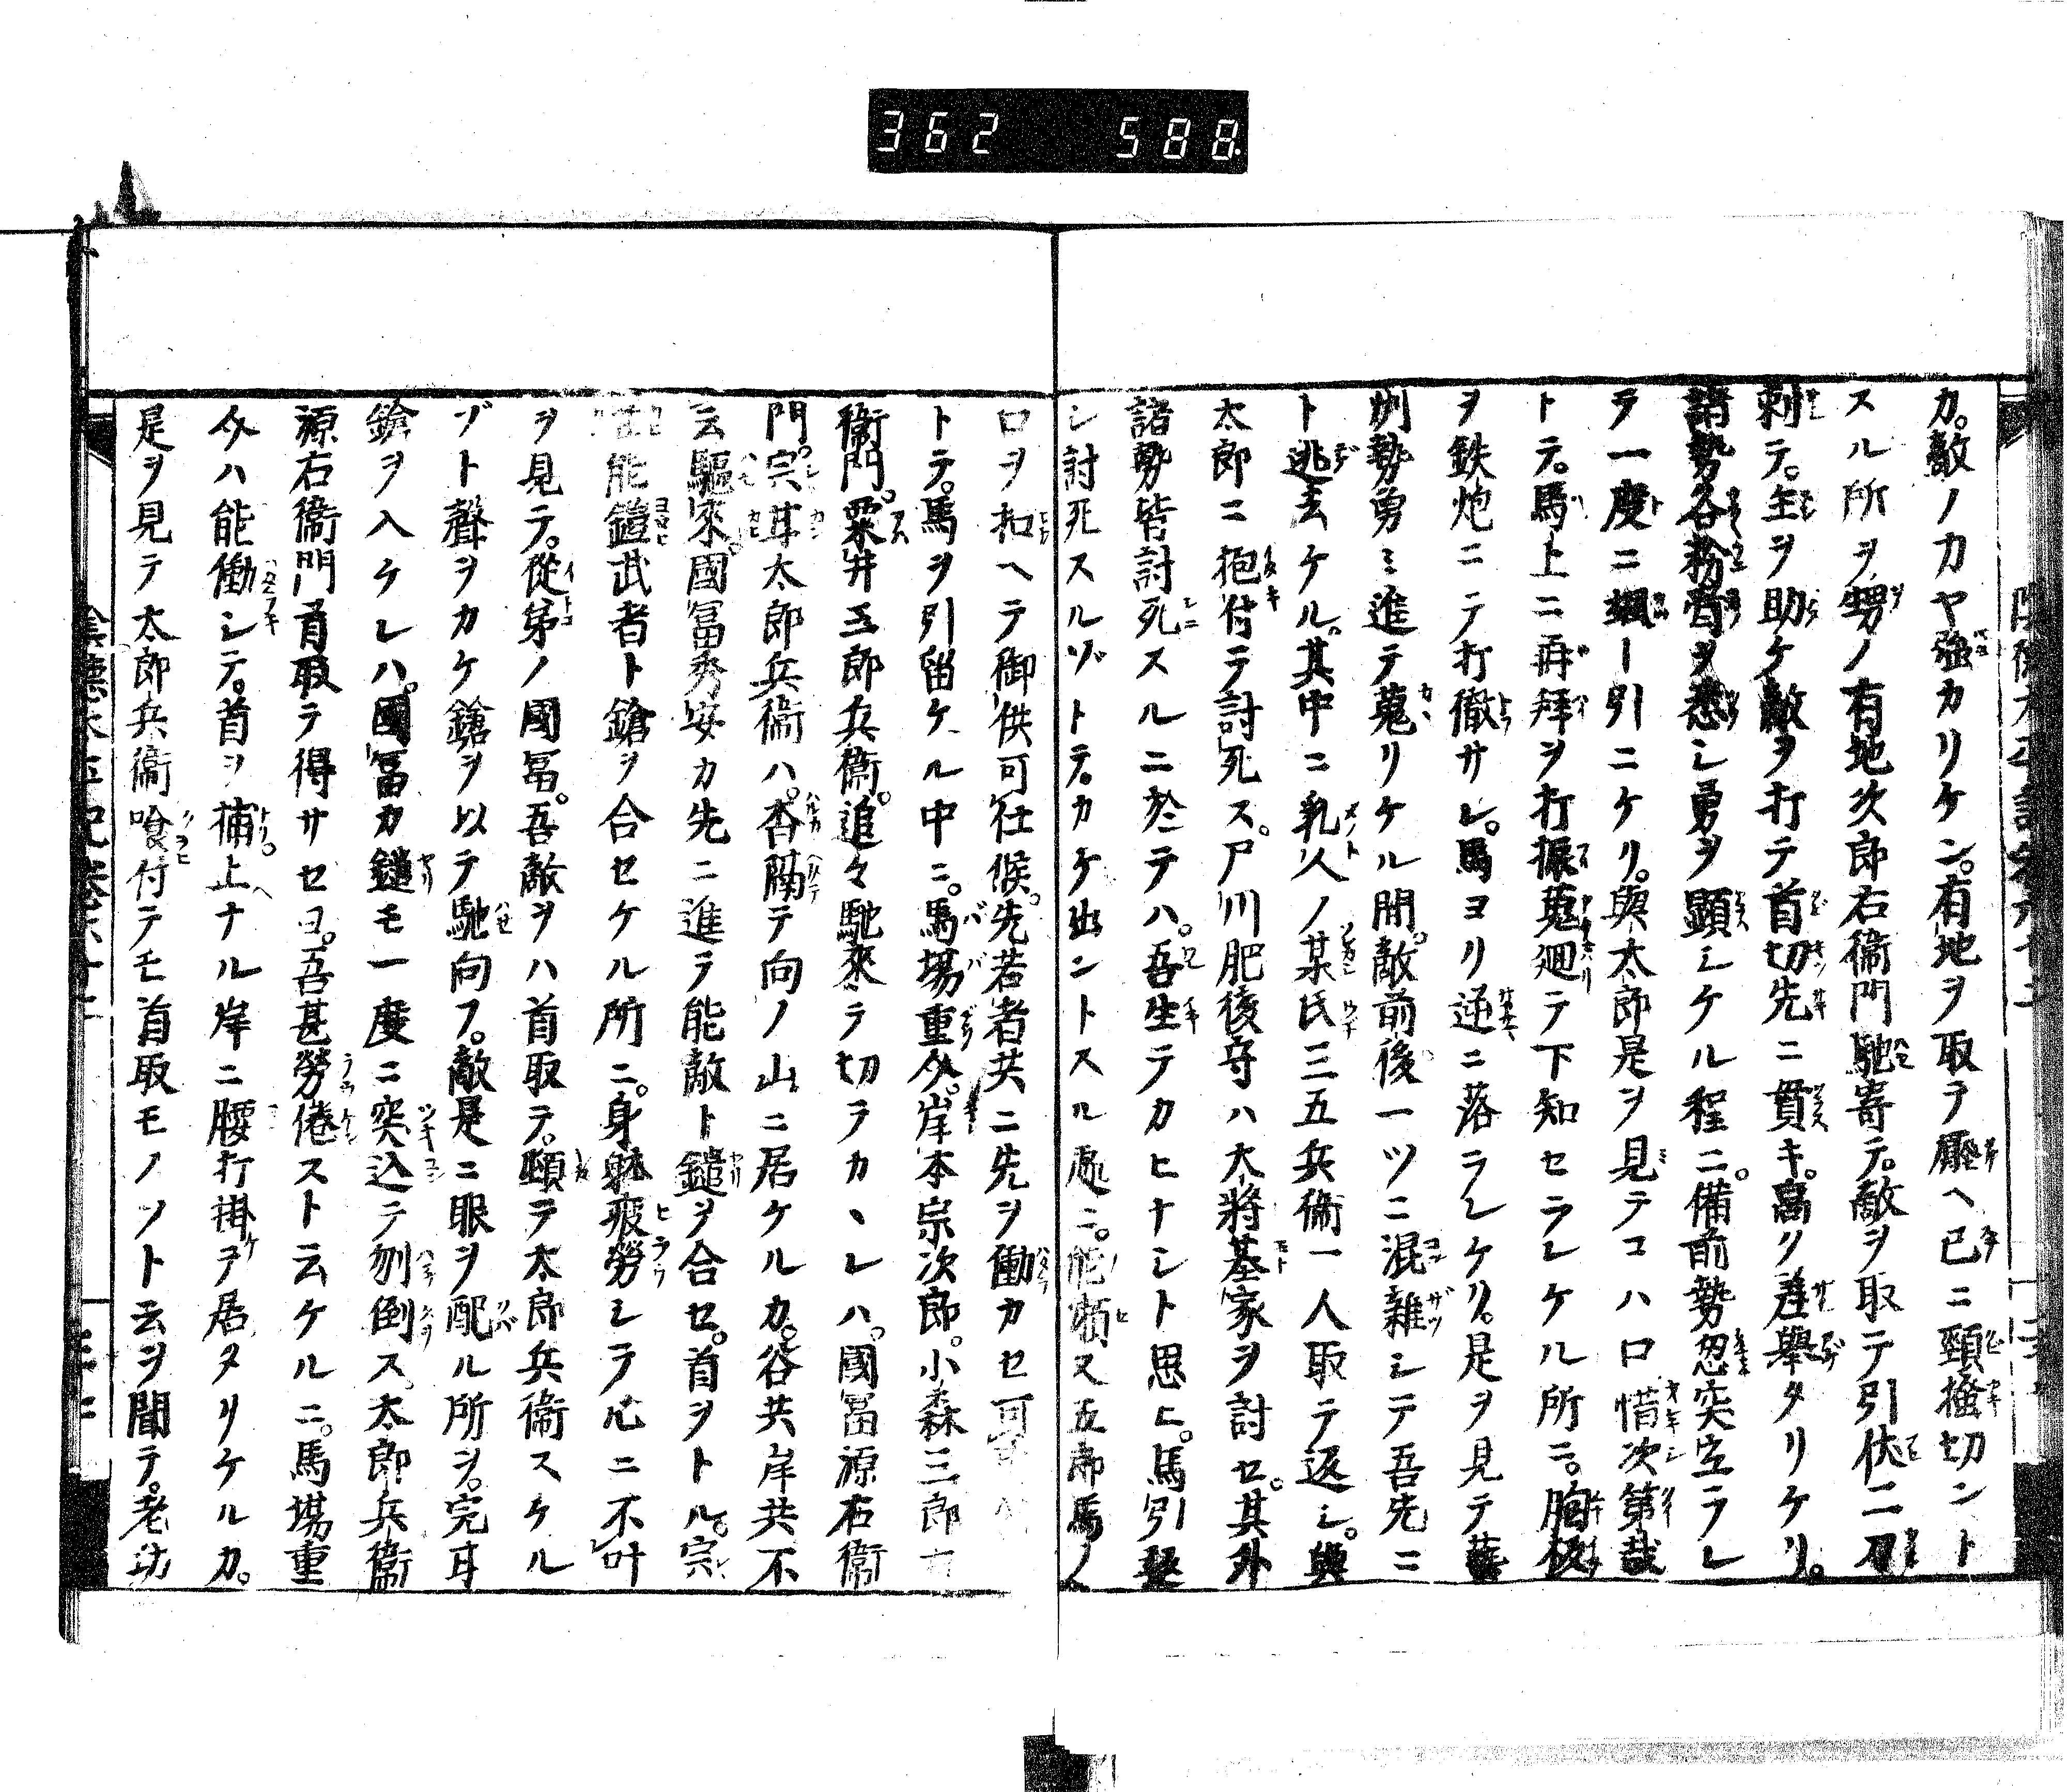 362 588
カ。敵ノカヤ强カリケン。有地ヲ取テ壓ヘ已ニ頸搔切ント
スル所ヲ甥ノ有地次郎右衞門馳寄テ。敵ヲ取テ引伏二刀
刺テ。主ヲ助ケ敵ヲ打テ首切先ニ貫キ。高ク差擧タリケリ。
諸勢各粉骨ヲ悉シ勇ヲ顯シケル程ニ。備前勢忽突立ラレ
テ一度ニ颯ー引ニケリ。與太郎是ヲ見テコハ口惜次第哉
トテ。馬上ニ再拜ヲ打振蒐廻テ下知セラレケル所ニ。胸板
ヲ鉄炮ニテ打徹サレ。馬ヨリ逆ニ落ラレケリ。是ヲ見テ藝
州勢勇ミ進テ蒐リケル間。敵前後一ツニ混雜シテ吾先ニ
ト逃去ケル。其中ニ乳人ノ某氏三五兵衞一人取テ返シ。與
太郎ニ抱付テ討死ス。戸川肥後守ハ大將基家ヲ討セ。其外
諸勢皆討死スルニ於テハ。吾生テカヒナシト思ヒ。馬引
シ討死スルゾトテ。カケ出ントスル處ニ。能㔟又五郎馬ノ
口ヲ扣ヘテ御供可仕候。先若者共ニ先ヲ働カセ可
トテ。馬ヲ引留ケル中ニ。馬場重介。岸本宗次郎。小森三郎
衞門。粟井五郎兵衞。追々馳來テ切ラカヽレハ。國冨源右衞
門。宍耳太郎兵衞ハ。杳隔テ向ノ山ニ居ケルカ。谷共岸共不
云驅來。國冨秀安カ先ニ進テ能敵ト鑓ヲ合セ。首ヲトル。宍
耳能鎧武者ト鎗ヲ合セケル所ニ。身躰疲勞シテ心ニ不叶
ヲ見テ。從弟ノ國冨。吾敵ヲハ首取テ。頓テ太郎兵衞スケル
ゾト聲ヲカケ鎗ヲ以テ馳向フ。敵是ニ眼ヲ配ル所ヲ。宍耳
鎗ヲ入ケレハ。國冨カ鑓モ一度ニ突込テ刎倒ス。太郎兵衞
源右衞門首取テ得サセヨ。吾甚勞倦スト云ケルニ。馬場重
介ハ能働シテ。首ヲ捕上ナル岸ニ腰打掛テ居タリケルカ。
是ヲ見テ太郎兵衞喰付テモ首取モノソト云ヲ聞テ。老功